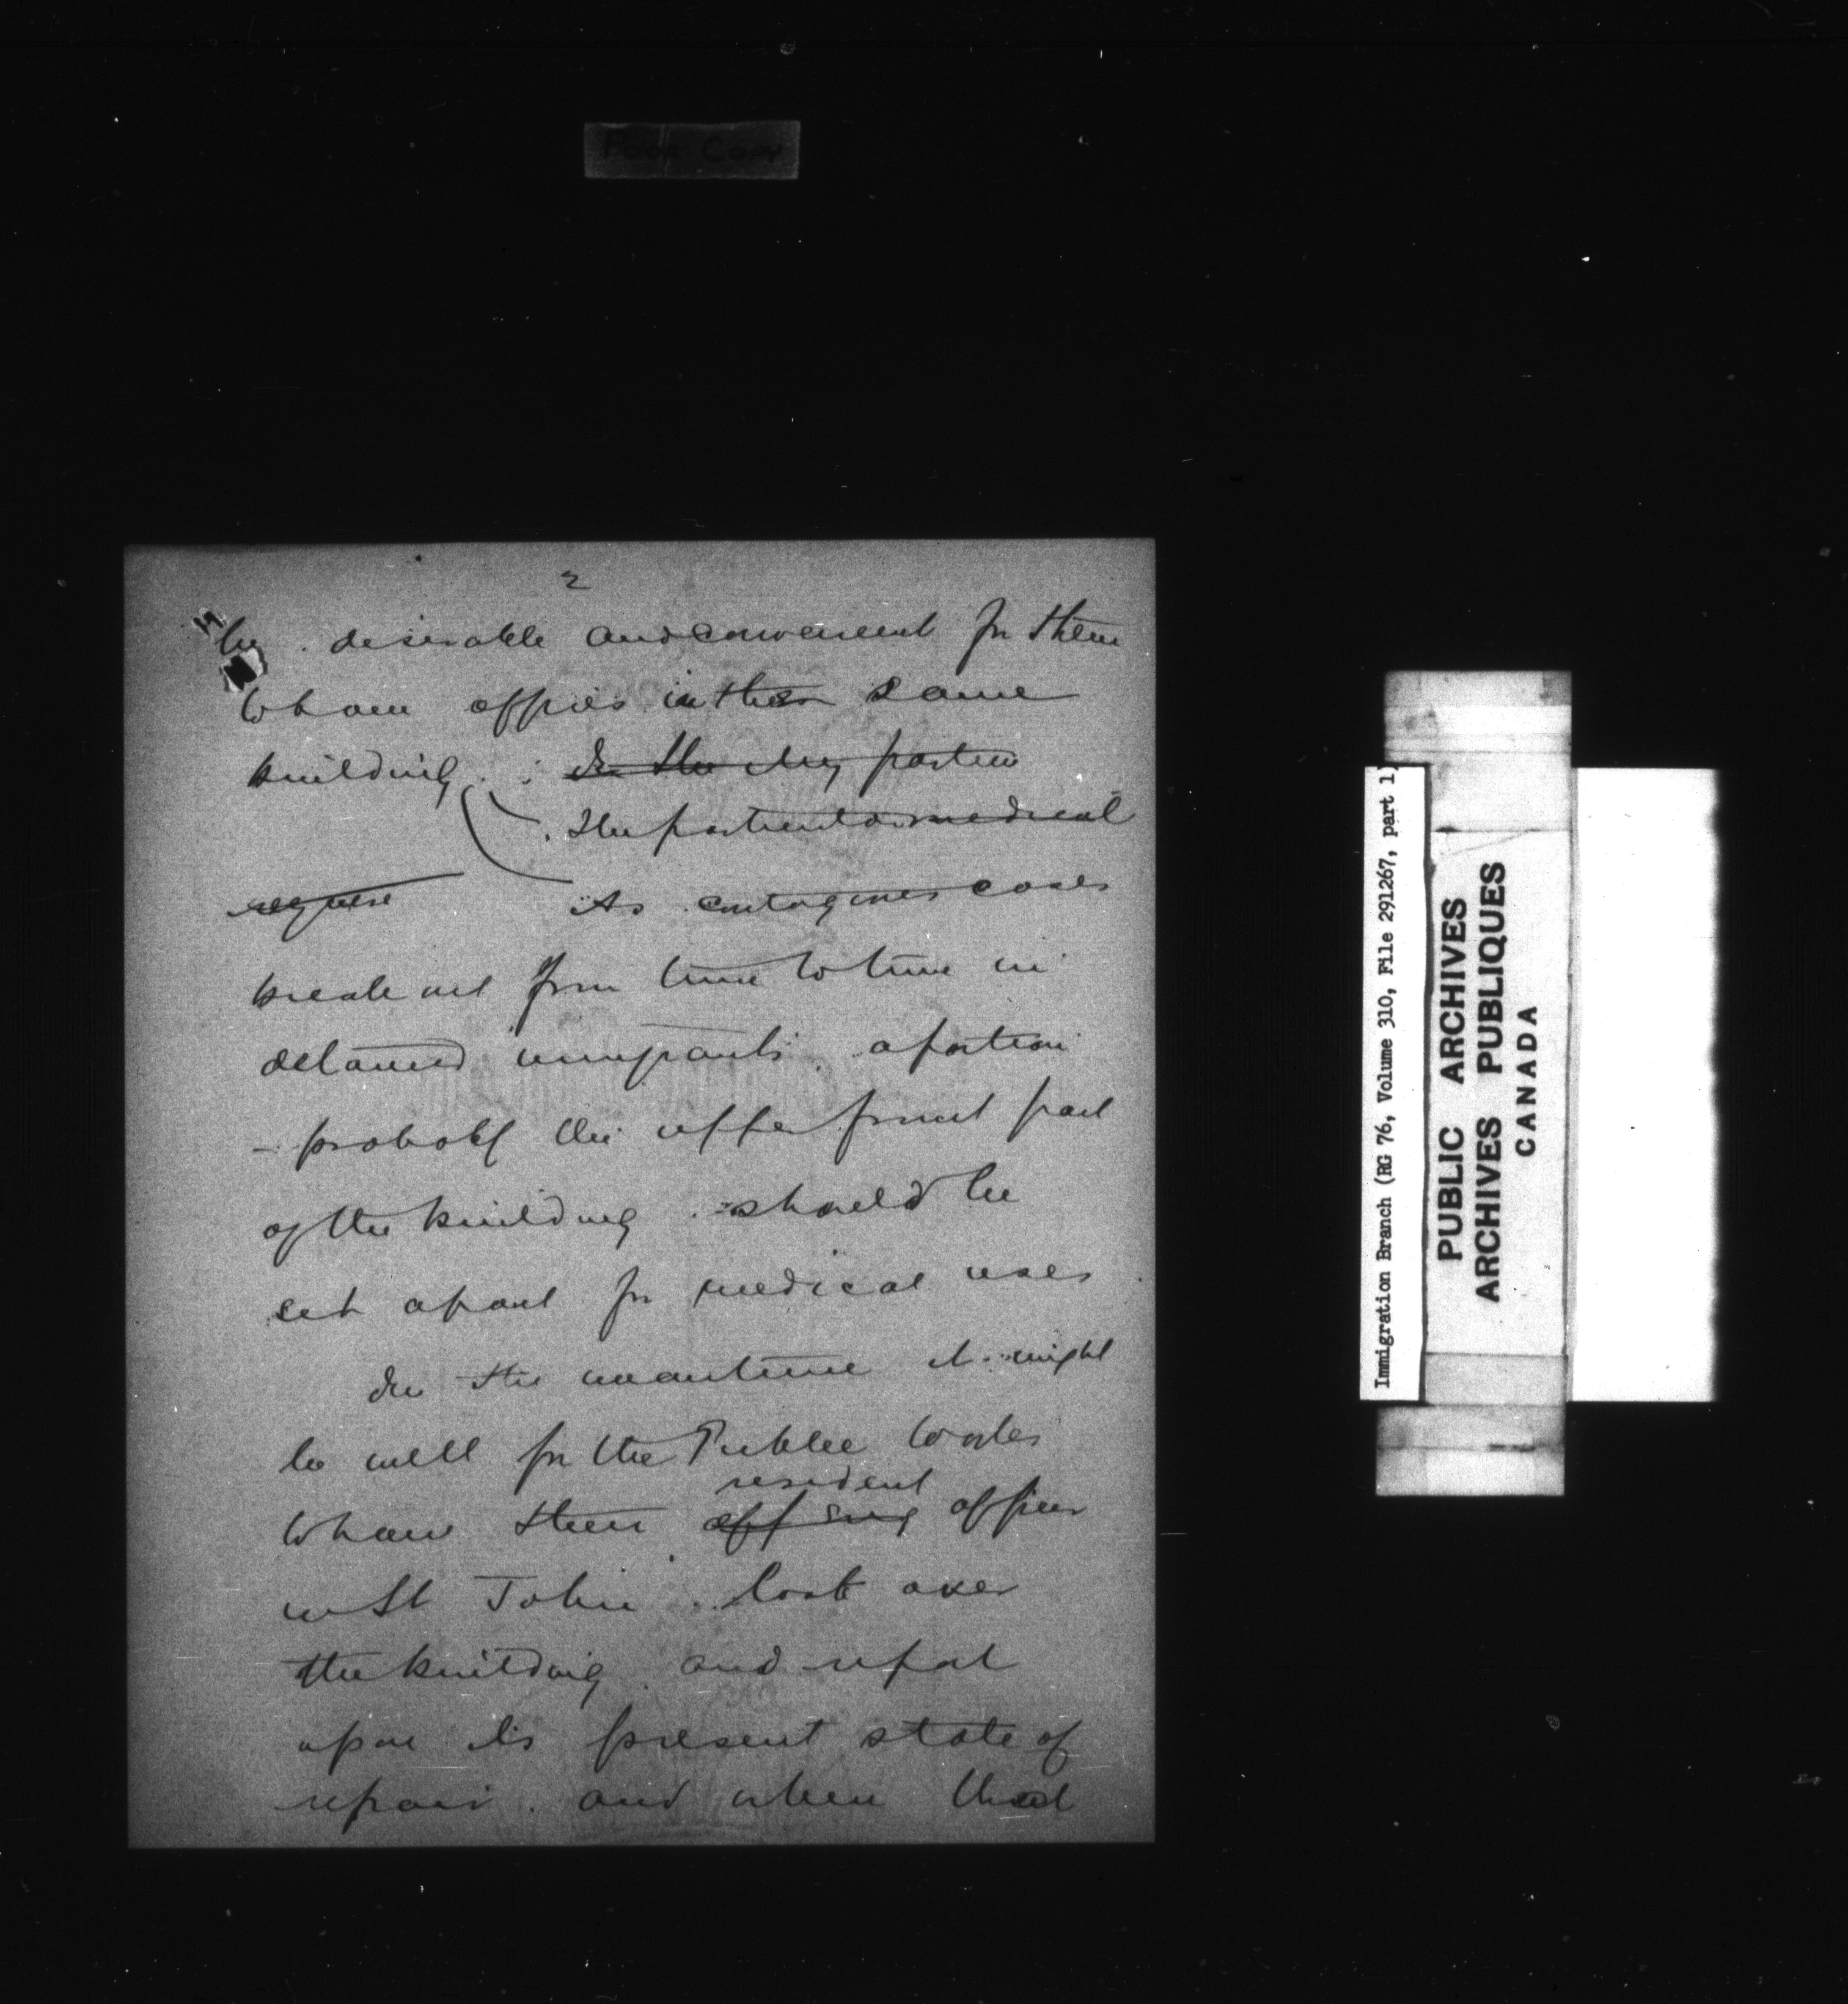 Poor Copy
2
be desirable and convenient for them
to have offices in the same
building.
The portion for medical
require As contagious cases
break out from time to time in
detained immigrants, a portion
- probably the upper front part
of the building should be
set apart for medical uses.
In the meantime it might
be well for the Public Works
resident
to have their officer
in St John look over
the building and report
upon its present state of
repair and when that
Immigration Branch (RG 76, Volume 310, File 291267, part 1)
PUBLIC ARCHIVES
ARCHIVES PUBLIQUES
CANADA